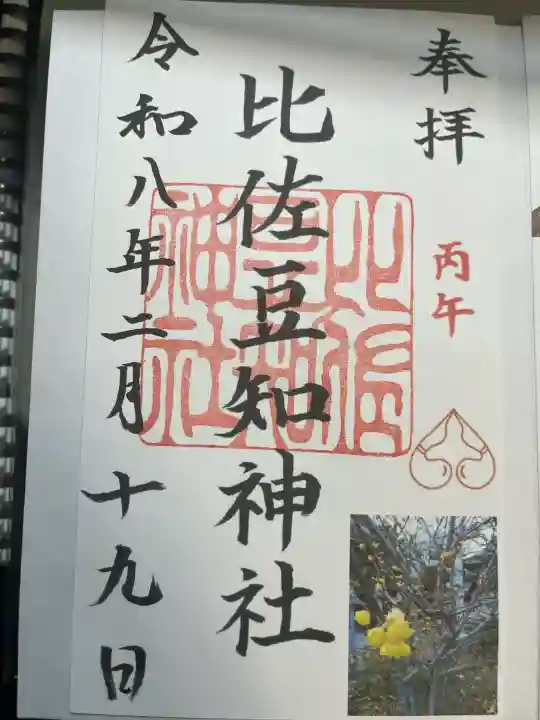 奉拝
丙午
比佐豆知神社
比佐豆知神社
令和八年二月十九日